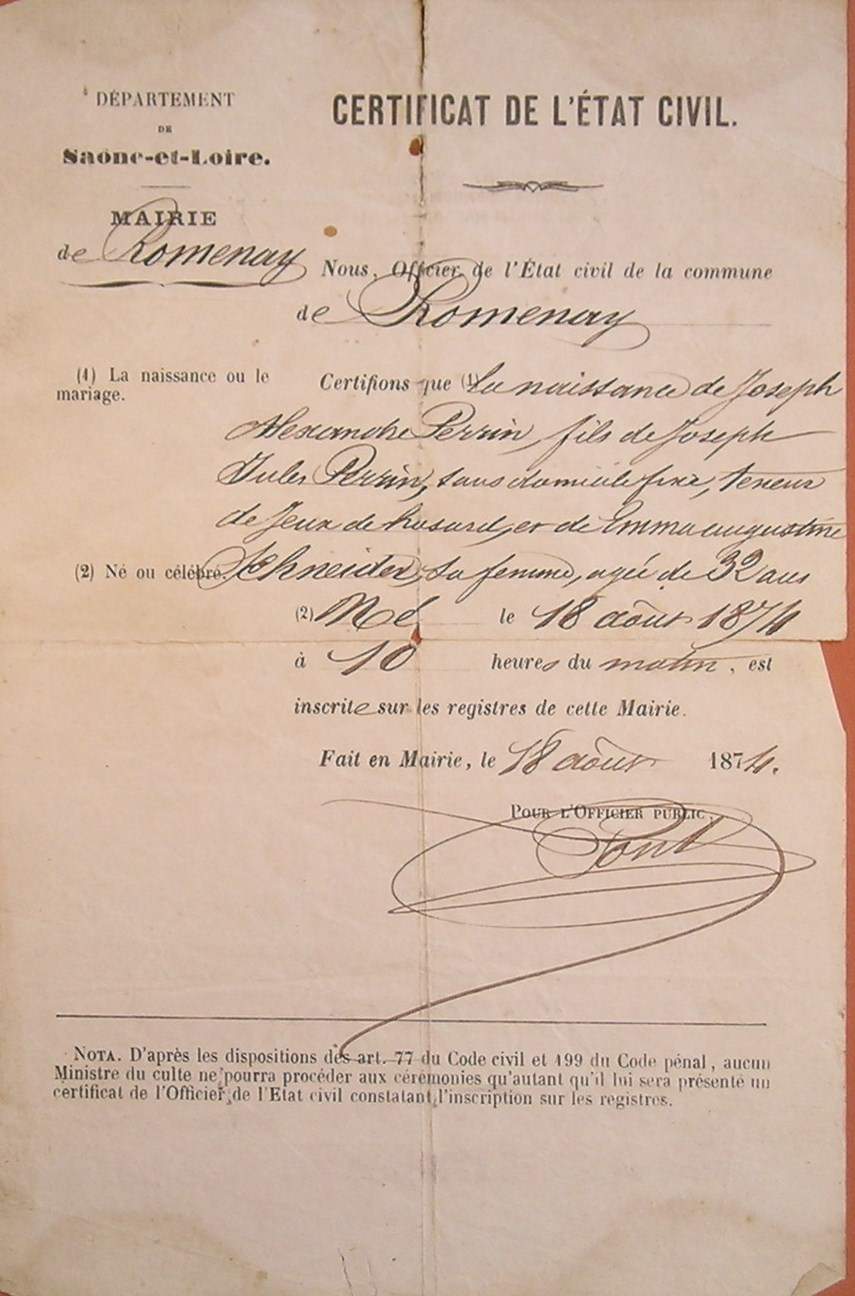 DÉPARTEMENT
DE
Saône-et-Loire.
MAIRIE
de Romenay
CERTIFICAT DE L'ÉTAT CIVIL.
Nous, Officier de l'État civil de la commune
de Romenay
(1) La naissance ou le
mariage.
Certifions que (1) La naissance de Joseph
Alexandre Perrin, fils de Joseph
Jules Perrin, sans domicile fixe, teneur
de Jeux de hasard, et de Emma augustine
(2) Né ou célébré.
Schneider, sa femme, agée de 32 ans
(2) Né le 18 août 1874
à 10 heures du matin, est
inscrite sur les registres de cette Mairie.
Fait en Mairie, le 18 août 1874.
POUR L'OFFICIER PUBLIC,
NOTA. D'après les dispositions des art. 77 du Code civil et 199 du Code pénal, aucun
Ministre du culte ne pourra procéder aux cérémonies qu'autant qu'il lui sera présenté un
certificat de l'Officier de l'Etat civil constatant l'inscription sur les registres.